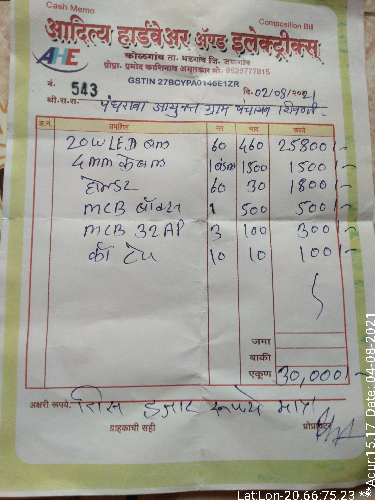 Cash Memo
Composition Bill
आदित्य हार्डवेअर अॅण्ड इलेक्ट्रीक्स
कोळगांव ता. भडगांव जि. जळगांव
AHE
प्रोप्रा. प्रमोद काशिनाथ अमृतकार मो. 9623777815
GSTIN 27BCYPA0146E1ZR
नं. 543
दि. 02/08/2021
श्री.रा.रा. पंधरावा आयुक्त ग्राम पंचायत शिवणी
अ.नं. तपशिल नग भाव रूपये
20W LED बल्ब 60 460 25800/-
4mm केबल 1 बंडल 1500 1500/-
होल्डर 60 30 1800/-
MCB बॉक्स 1 500 500/-
MCB 32 AP 3 100 300/-
टेप 10 10 100/-
जमा
बाकी
एकूण 30,000/-
अक्षरी रूपये. तिस हजार रूपये मात्र
ग्राहकाची सही
प्रोप्रायटर
LatLon-20.66:75.23 **Acur:15.17 Date: 04-08-2021